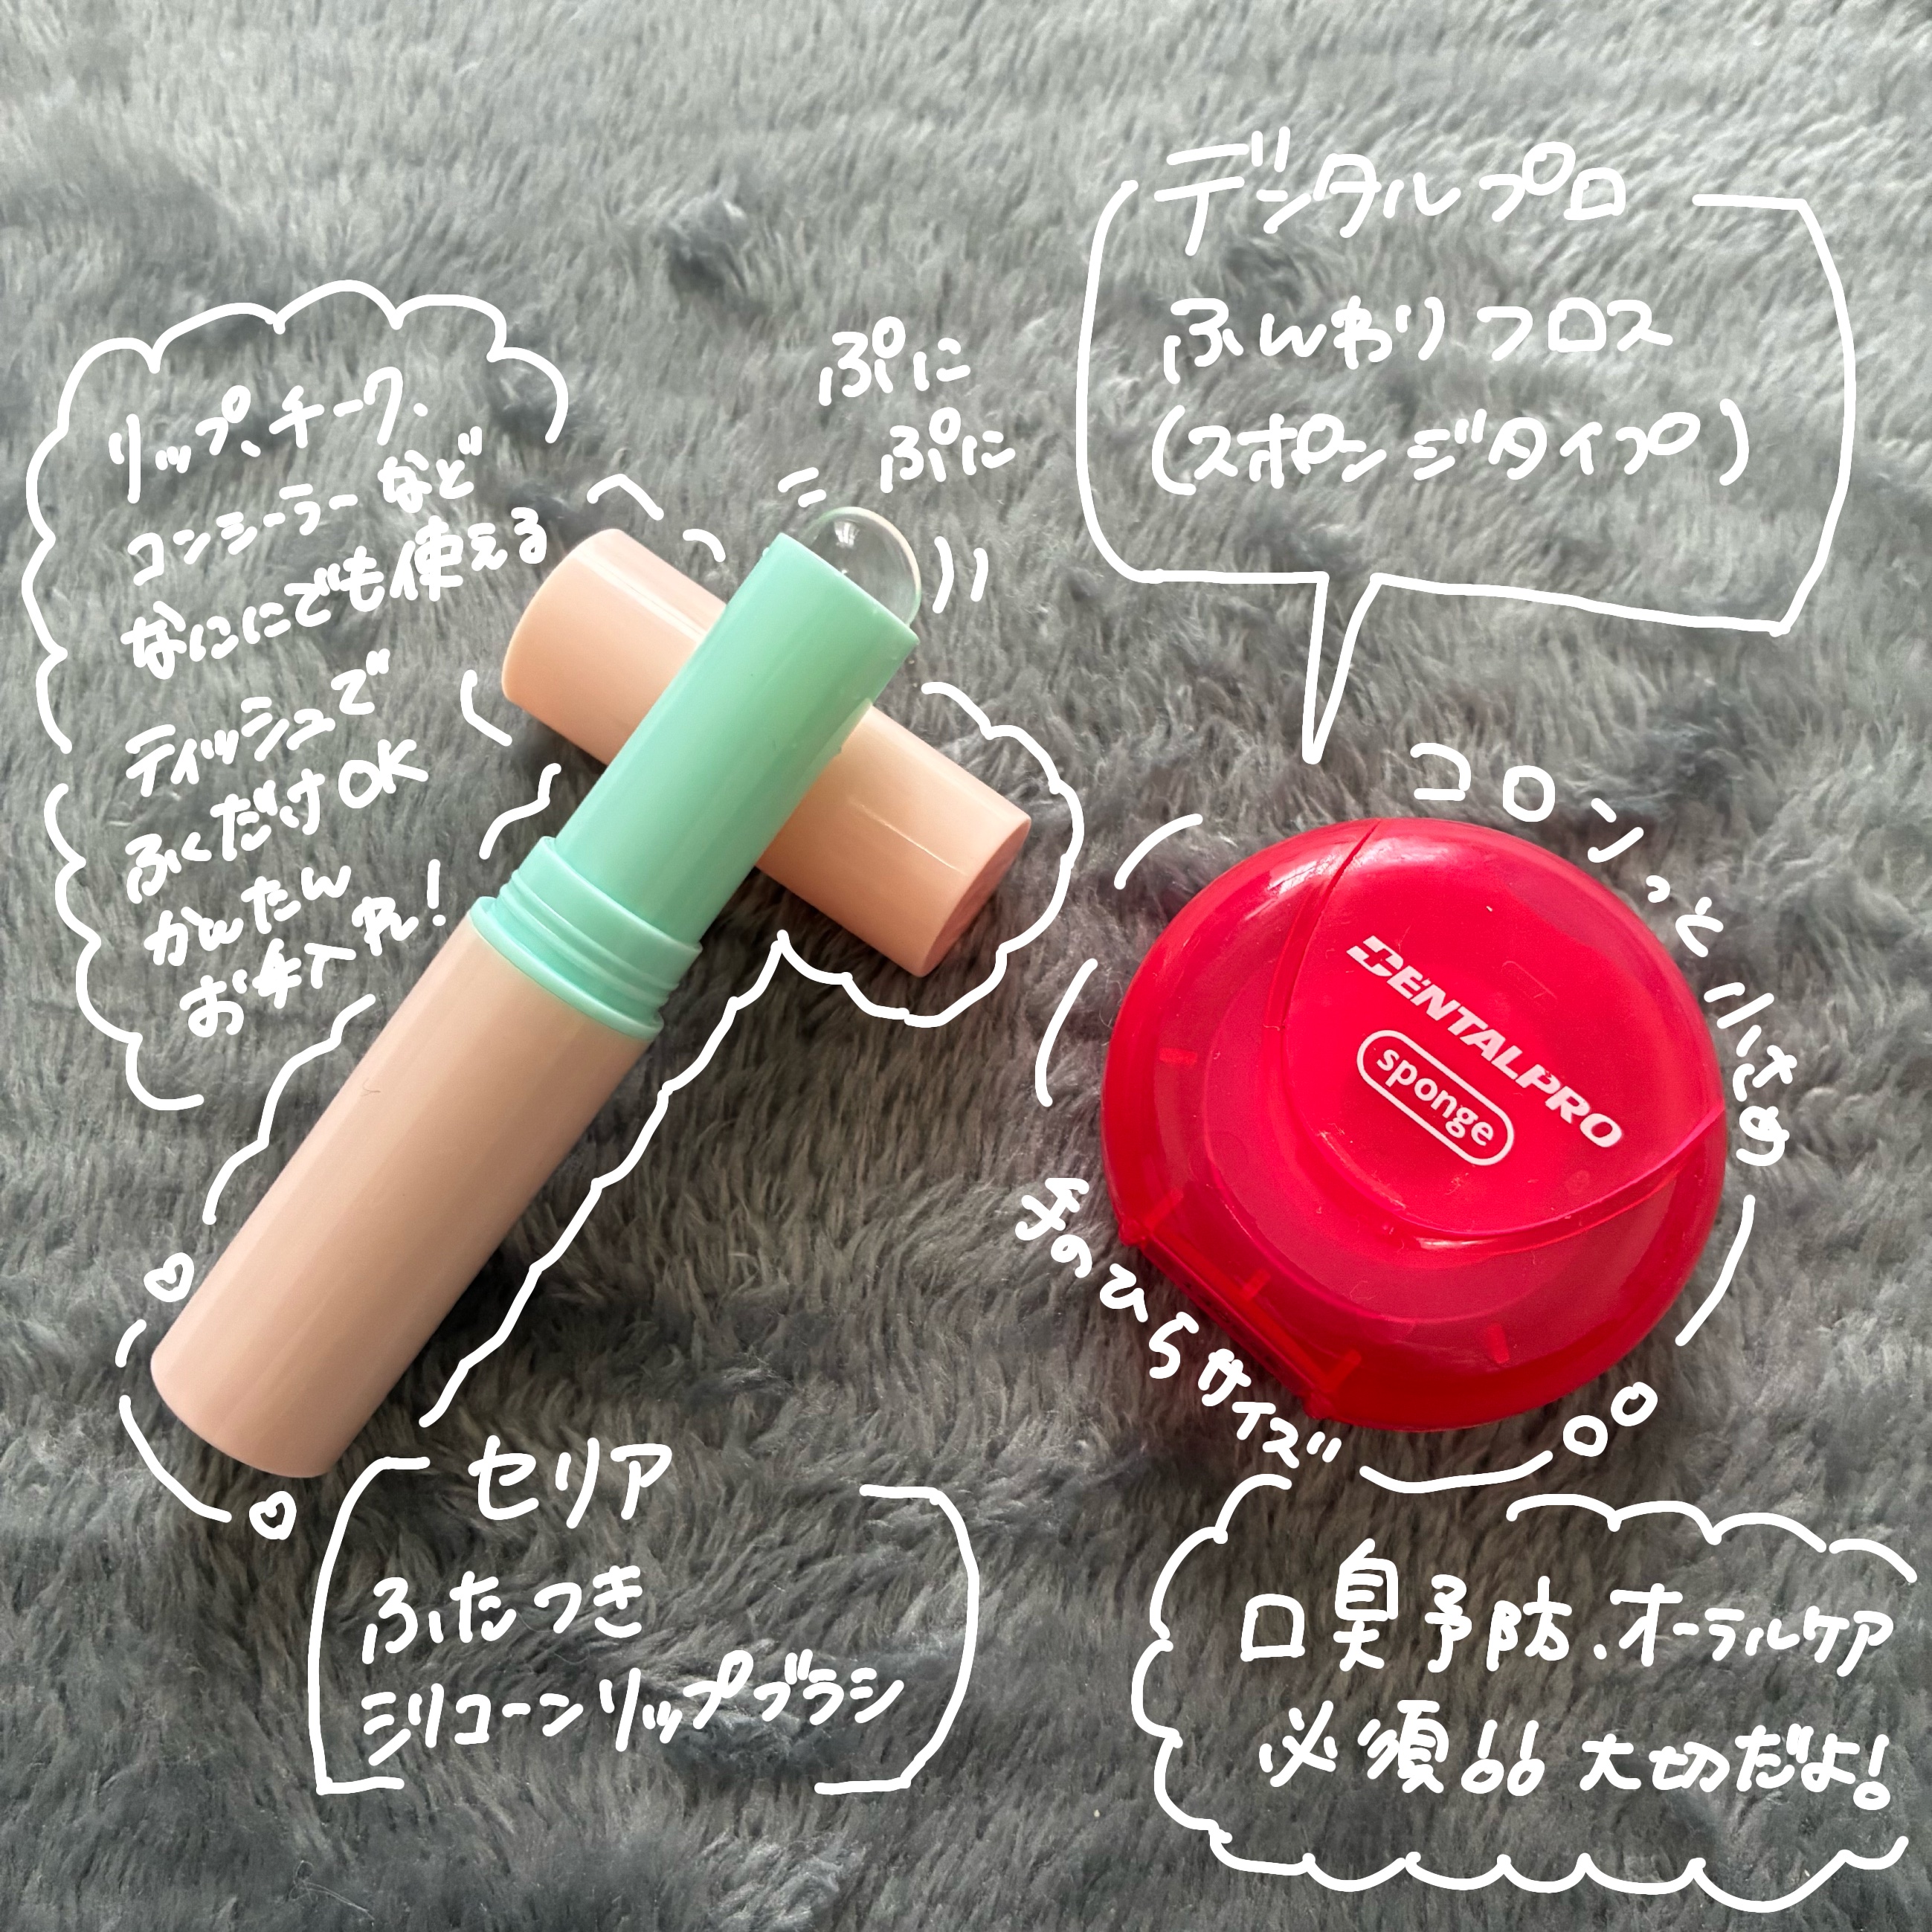 リップ、チーク、
コンシーラーなど
なににでも使える
ティッシュで
ふくだけOK
かんたん
お手入れ!
ぷに
ぷに
セリア
ふたつき
シリコーンリップブラシ
デンタルプロ
ふんわりフロス
(スポンジタイプ)
コロンっと小さめ
DENTALPRO
sponge
手のひらサイズ
口臭予防、オーラルケア
必須!! 大切だよ!